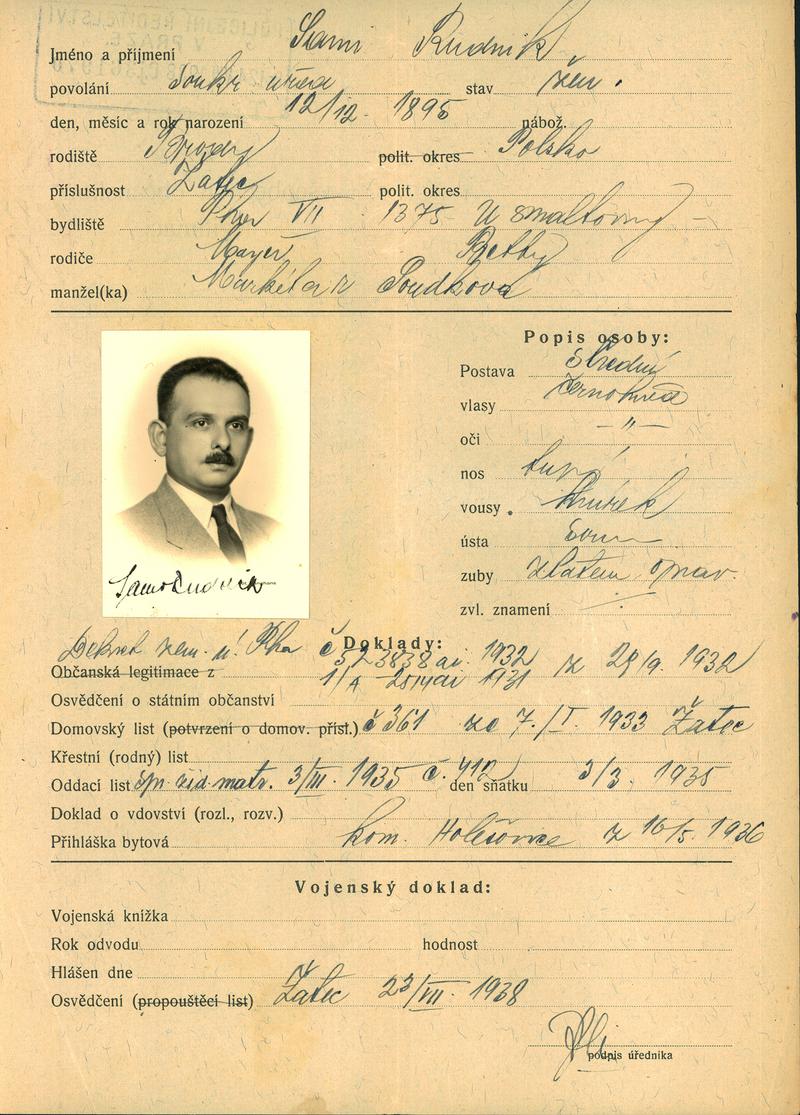 Jméno a příjmení Sami Rudnik
povolání soukr. úřed stav žen.
den, měsíc a rok narození 12/12. 1895 nábož.
rodiště Brody polit. okres Polsko
příslušnost Žatec polit. okres
bydliště Praha VII 1375 U smaltovny
rodiče Mayer Betty
manžel(ka) Markéta r Soudková
Popis osoby:
Postava střední
vlasy černohněd
oči – " –
nos tupý
vousy knírek
ústa soum
zuby zlatem oprav.
zvl. znamení
Samo Rudnik
Doklady:
Dekret zem. ú. Pha č 1932
Občanská legitimace z z 29/9. 1932
1931
Osvědčení o státním občanství
Domovský list (potvrzení o domov. přísl.) č 361 ze 7./I. 1933 Žatec
Křestní (rodný) list
Oddací list žid. matr. 3/III. 1935 č. 412 den sňatku 3/3. 1935
Doklad o vdovství (rozl., rozv.)
Přihláška bytová kom. Holešovice z 16/5. 1936
Vojenský doklad:
Vojenská knížka
Rok odvodu hodnost
Hlášen dne
Osvědčení (propouštěcí list) Žatec 23/VII. 1938
podpis úředníka